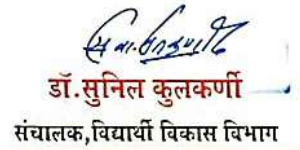 डॉ.सुनिल कुलकर्णी
संचालक,विद्यार्थी विकास विभाग